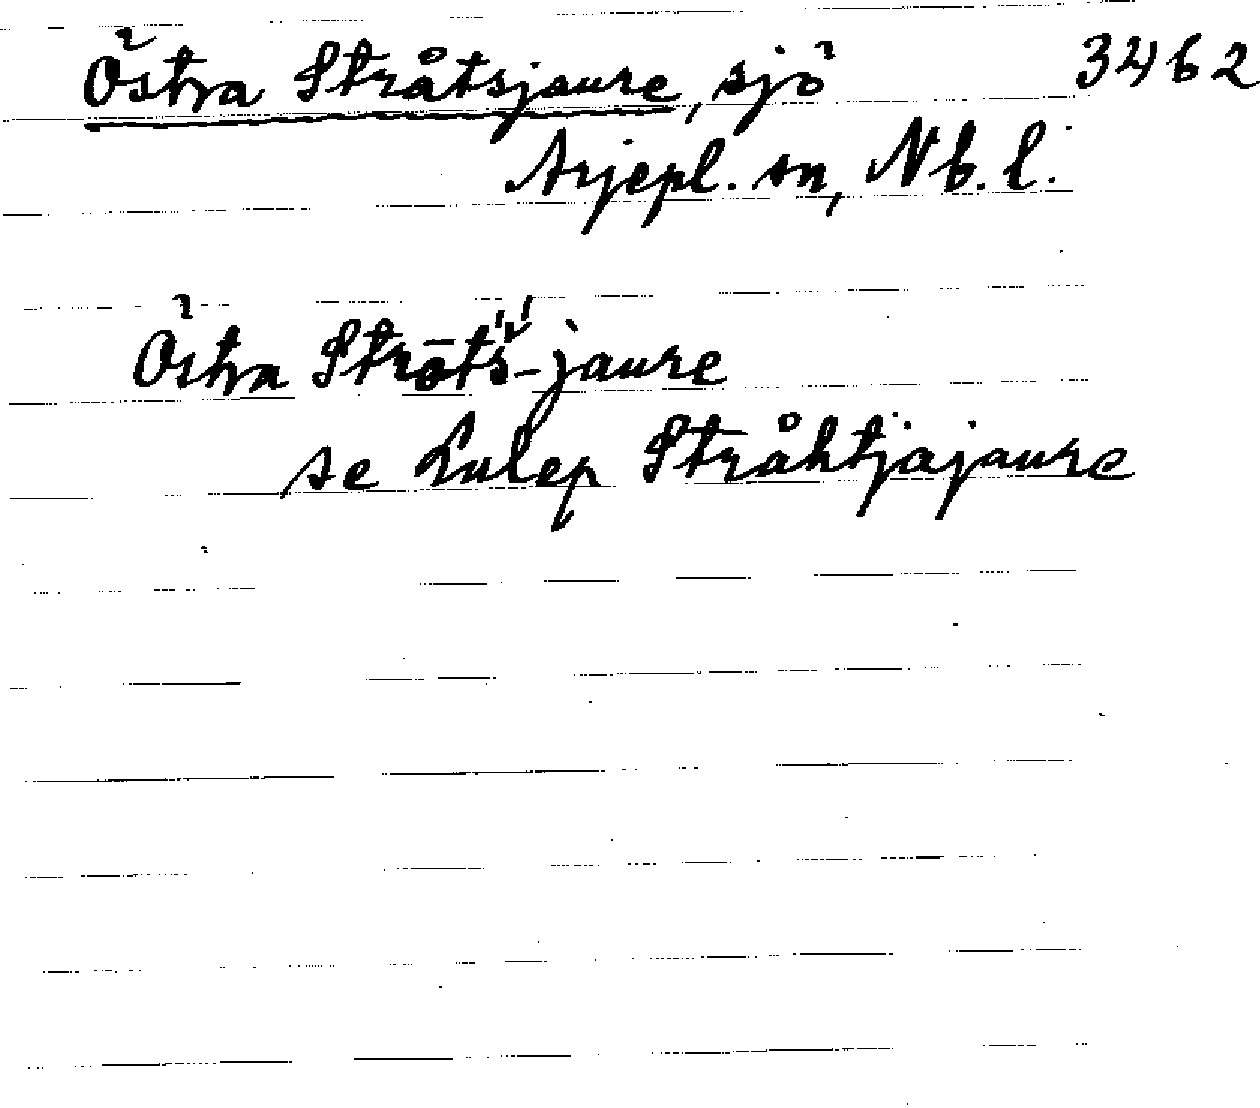 Östra Stråtsjaure, sjö 3462
Arjepl. sn, Nb. l.
Östra
se Lulep Stråhtjajaure